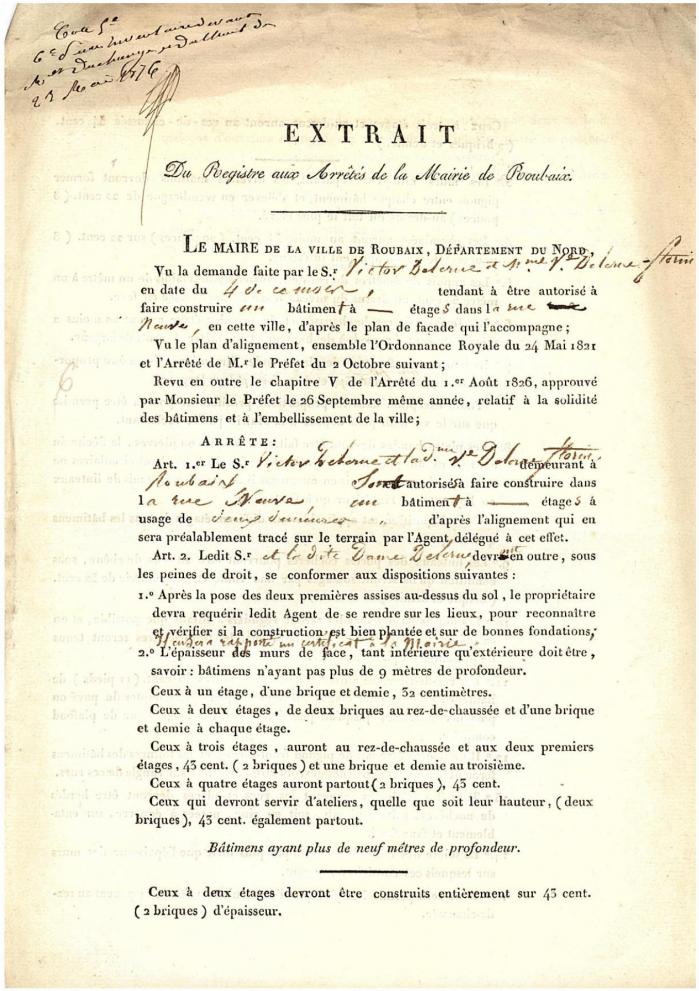 Cote 5e
6e d'un inventaire devant
Me Duchange
23 Mai 1876
EXTRAIT
Du Registre aux Arrêtés de la Mairie de Roubaix.
LE MAIRE DE LA VILLE DE ROUBAIX, DÉPARTEMENT DU NORD,
Vu la demande faite par le S.r Victor Delerue et Mme Ve Delerue-florin
en date du 4 decembre, tendant à être autorisé à
faire construire un bâtiment à — étages dans la rue
Neuve, en cette ville, d'après le plan de façade qui l'accompagne ;
Vu le plan d'alignement, ensemble l'Ordonnance Royale du 24 Mai 1821
et l'Arrêté de M.r le Préfet du 2 Octobre suivant ;
Revu en outre le chapitre V de l'Arrêté du 1.er Août 1826, approuvé
par Monsieur le Préfet le 26 Septembre même année, relatif à la solidité
des bâtimens et à l'embellissement de la ville ;
ARRÊTE :
Art. 1.er Le S.r Victor Delerue et la dme Ve Delerue florin demeurant à
Roubaix sont autorisés à faire construire dans
la rue Neuve un bâtiment à — étages à
usage de deux demeures „ d'après l'alignement qui en
sera préalablement tracé sur le terrain par l'Agent délégué à cet effet.
Art. 2. Ledit S.r et la dite Dame Delerue, devront en outre, sous
les peines de droit, se conformer aux dispositions suivantes :
1.º Après la pose des deux premières assises au-dessus du sol, le propriétaire
devra requérir ledit Agent de se rendre sur les lieux, pour reconnaître
et vérifier si la construction est bien plantée et sur de bonnes fondations,
Il en sera rapporté un certificat à la Mairie.
2.º L'épaisseur des murs de face, tant intérieure qu'extérieure doit être,
savoir : bâtimens n'ayant pas plus de 9 mètres de profondeur.
Ceux à un étage, d'une brique et demie, 32 centimètres.
Ceux à deux étages, de deux briques au rez-de-chaussée et d'une brique
et demie à chaque étage.
Ceux à trois étages, auront au rez-de-chaussée et aux deux premiers
étages, 43 cent. (2 briques) et une brique et demie au troisième.
Ceux à quatre étages auront partout (2 briques), 43 cent.
Ceux qui devront servir d'ateliers, quelle que soit leur hauteur, (deux
briques), 43 cent. également partout.
Bâtimens ayant plus de neuf mêtres de profondeur.
Ceux à deux étages devront être construits entièrement sur 43 cent.
(2 briques) d'épaisseur.